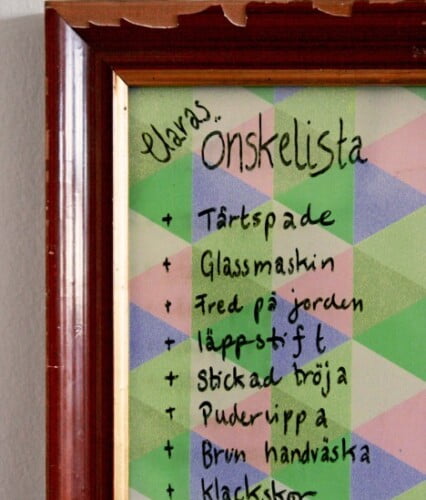 Claras
önskelista
+ Tårtspade
+ Glassmaskin
+ Fred på jorden
+ läppstift
+ Stickad tröja
+ Pudervippa
+ Brun handväska
+ klackskor